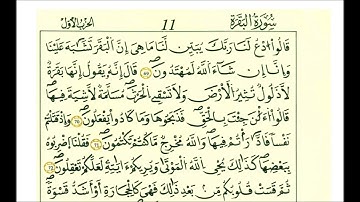 سُورَةُ الْبَقَرَةِ 11 الحزب الأول
قَالُوا ادْعُ لَنَا رَبَّكَ يُبَيِّن لَّنَا مَا هِيَ إِنَّ الْبَقَرَ تَشَٰبَهَ عَلَيْنَا
وَإِنَّا إِن شَآءَ اللَّهُ لَمُهْتَدُونَ قَالَ إِنَّهُۥ يَقُولُ إِنَّهَا بَقَرَةٌ
لَّا ذَلُولٌ تُثِيرُ الْأَرْضَ وَلَا تَسْقِي الْحَرْثَ مُسَلَّمَةٌ لَّا شِيَةَ فِيهَا
قَالُوا الْـَٰٔنَ جِئْتَ بِالْحَقِّ فَذَبَحُوهَا وَمَا كَادُوا يَفْعَلُونَ وَإِذْ قَتَلْتُمْ
نَفْسًا فَادَّٰرَأْتُمْ فِيهَا وَاللَّهُ مُخْرِجٌ مَّا كُنتُمْ تَكْتُمُونَ فَقُلْنَا اضْرِبُوهُ
بِبَعْضِهَا كَذَٰلِكَ يُحْيِ اللَّهُ الْمَوْتَىٰ وَيُرِيكُمْ ءَايَٰتِهِۦ لَعَلَّكُمْ تَعْقِلُونَ
ثُمَّ قَسَتْ قُلُوبُكُم مِّنۢ بَعْدِ ذَٰلِكَ فَهِيَ كَالْحِجَارَةِ أَوْ أَشَدُّ قَسْوَةً